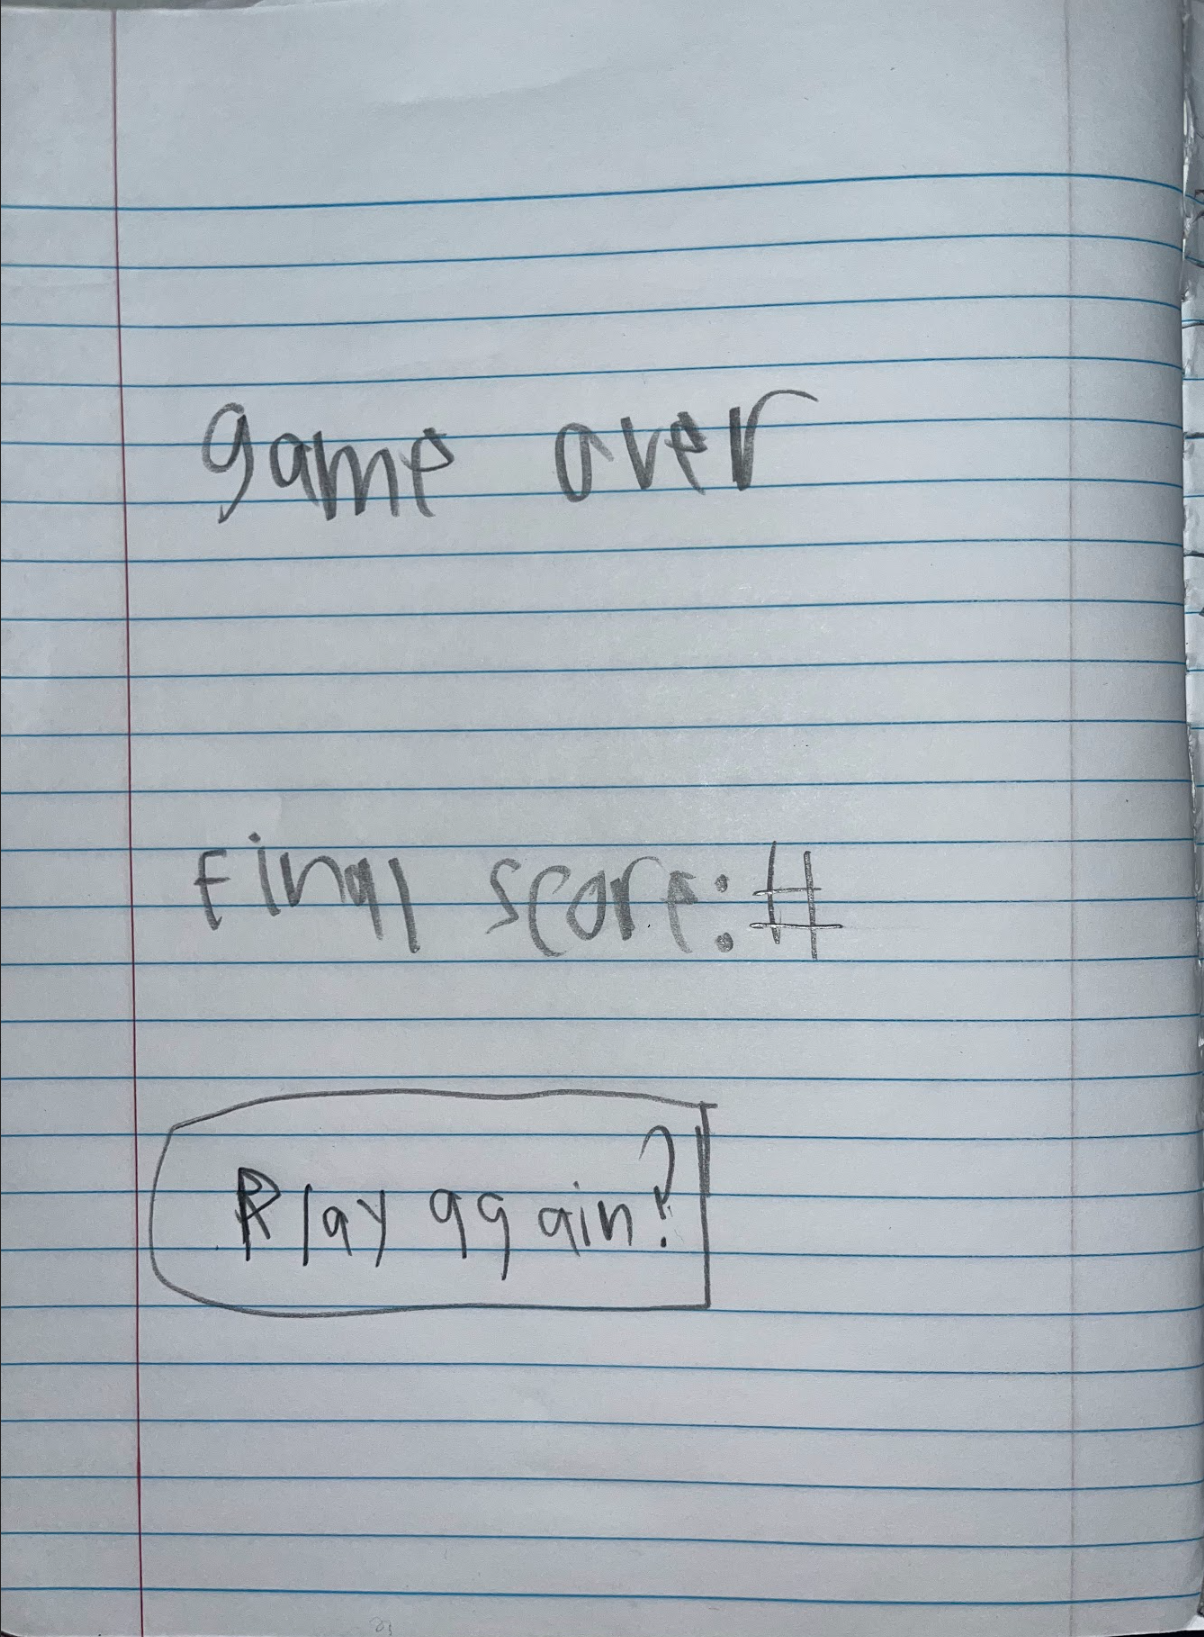 game over
Final score:#
Play aggain?